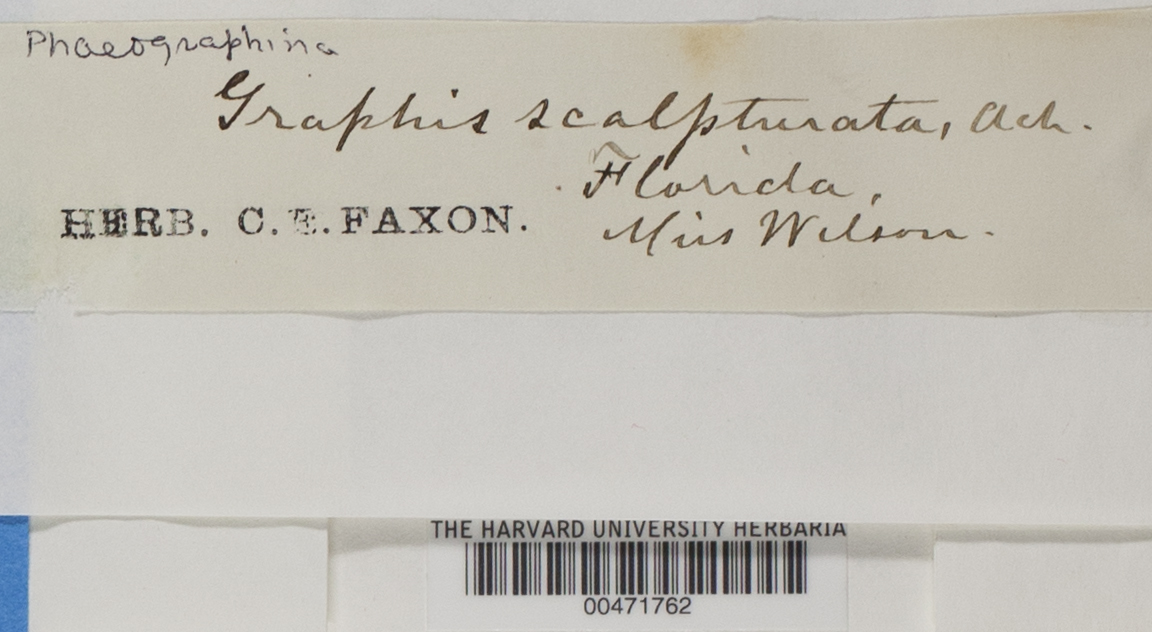 Phaeographina
Graphis scalpturata, Ach.
Florida,
HERB. C. E. FAXON.
Miss Wilson.
THE HARVARD UNIVERSITY HERBARIA
00471762